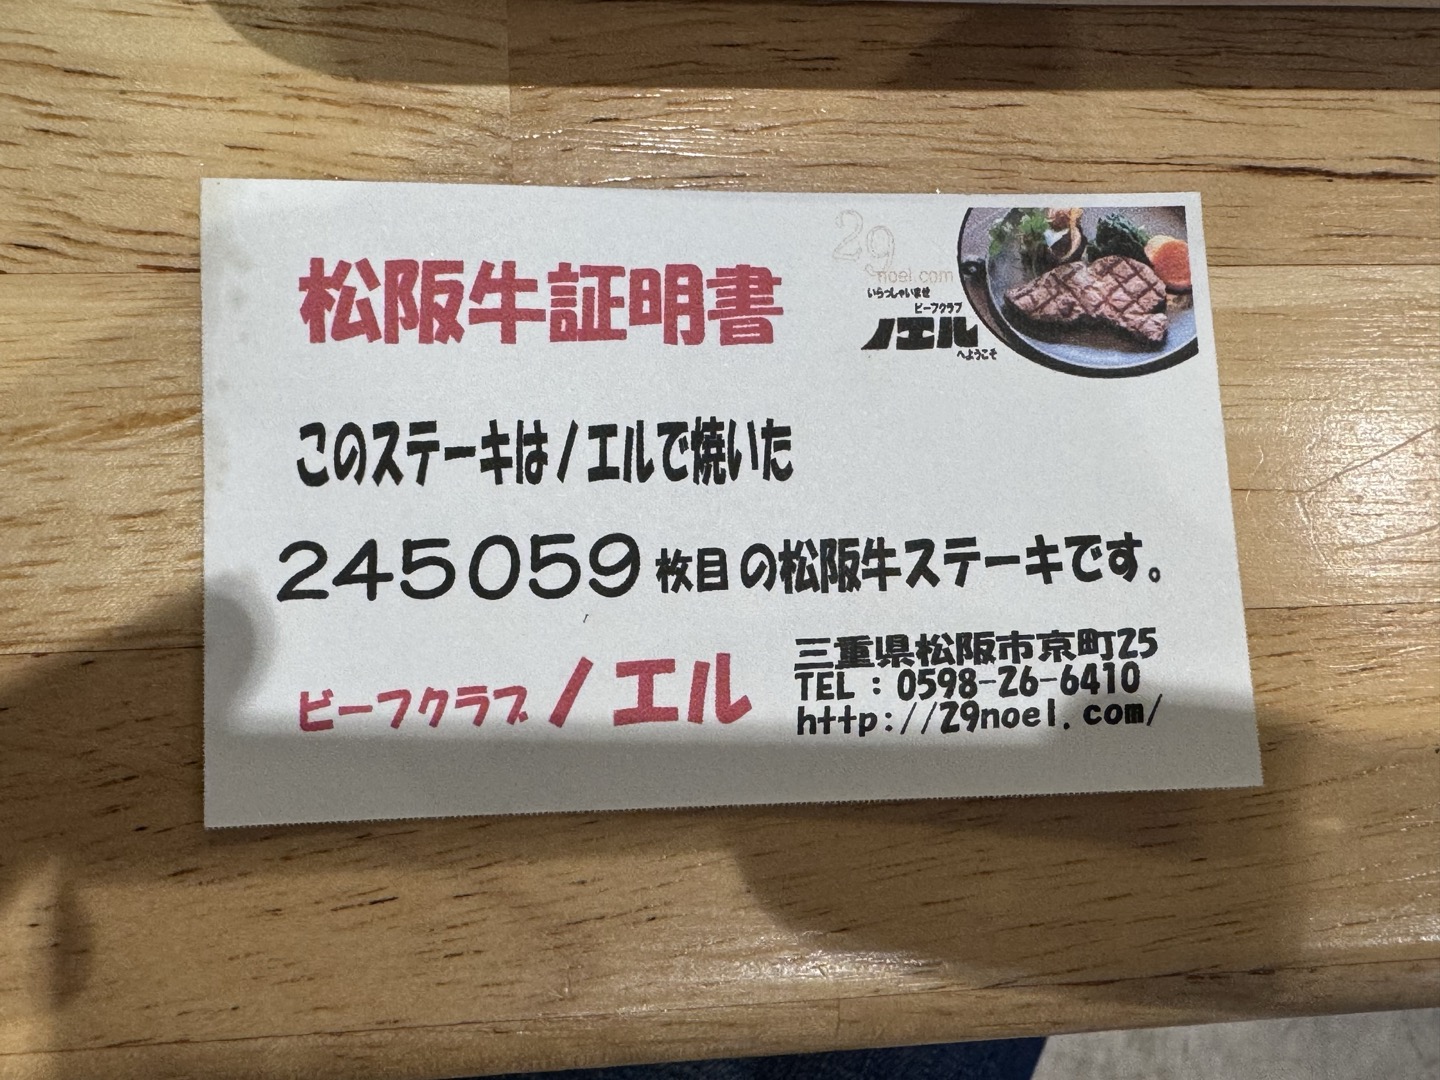 松阪牛証明書
29
noel.com
いらっしゃいませ
ビーフクラブ
ノエル
へようこそ
このステーキはノエルで焼いた
245059枚目の松阪牛ステーキです。
ビーフクラブノエル
三重県松阪市京町25
TEL：0598-26-6410
http://29noel.com/